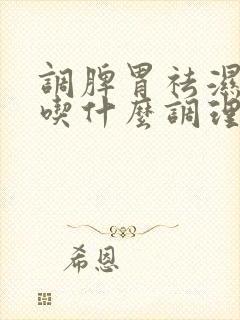 調脾胃祛濕
喫什麼調理
希恩